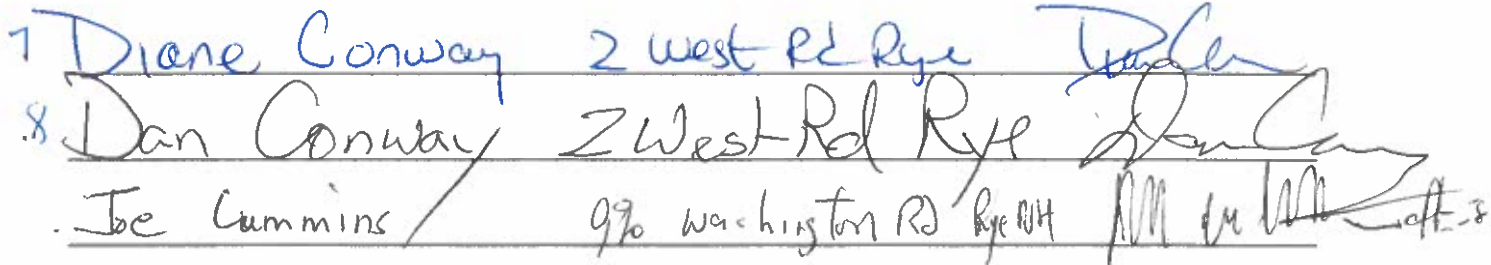 7 Diane Conway 2 West Rd Rye
8 Dan Conway 2 West Rd Rye Dan
Joe Cummins Washington Rd Rye NH